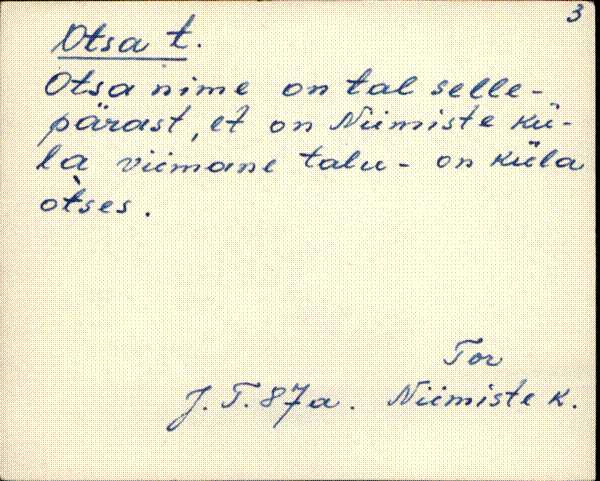 3
Otsa t.
Otsa nime on tal selle-
pärast, et on Niimiste kü-
la viimane talu - on küla
òtses.
Tor
J. T. 87a. Niimiste k.